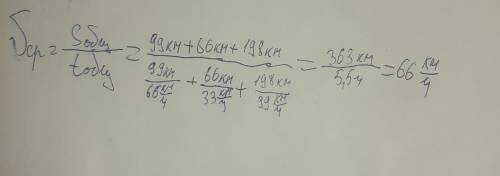 Vср = Sобщ/tобщ = (99км+66км+198км)/(99км/66км/ч + 66км/33км/ч + 198км/99км/ч) = 363км/5,5ч = 66 км/ч